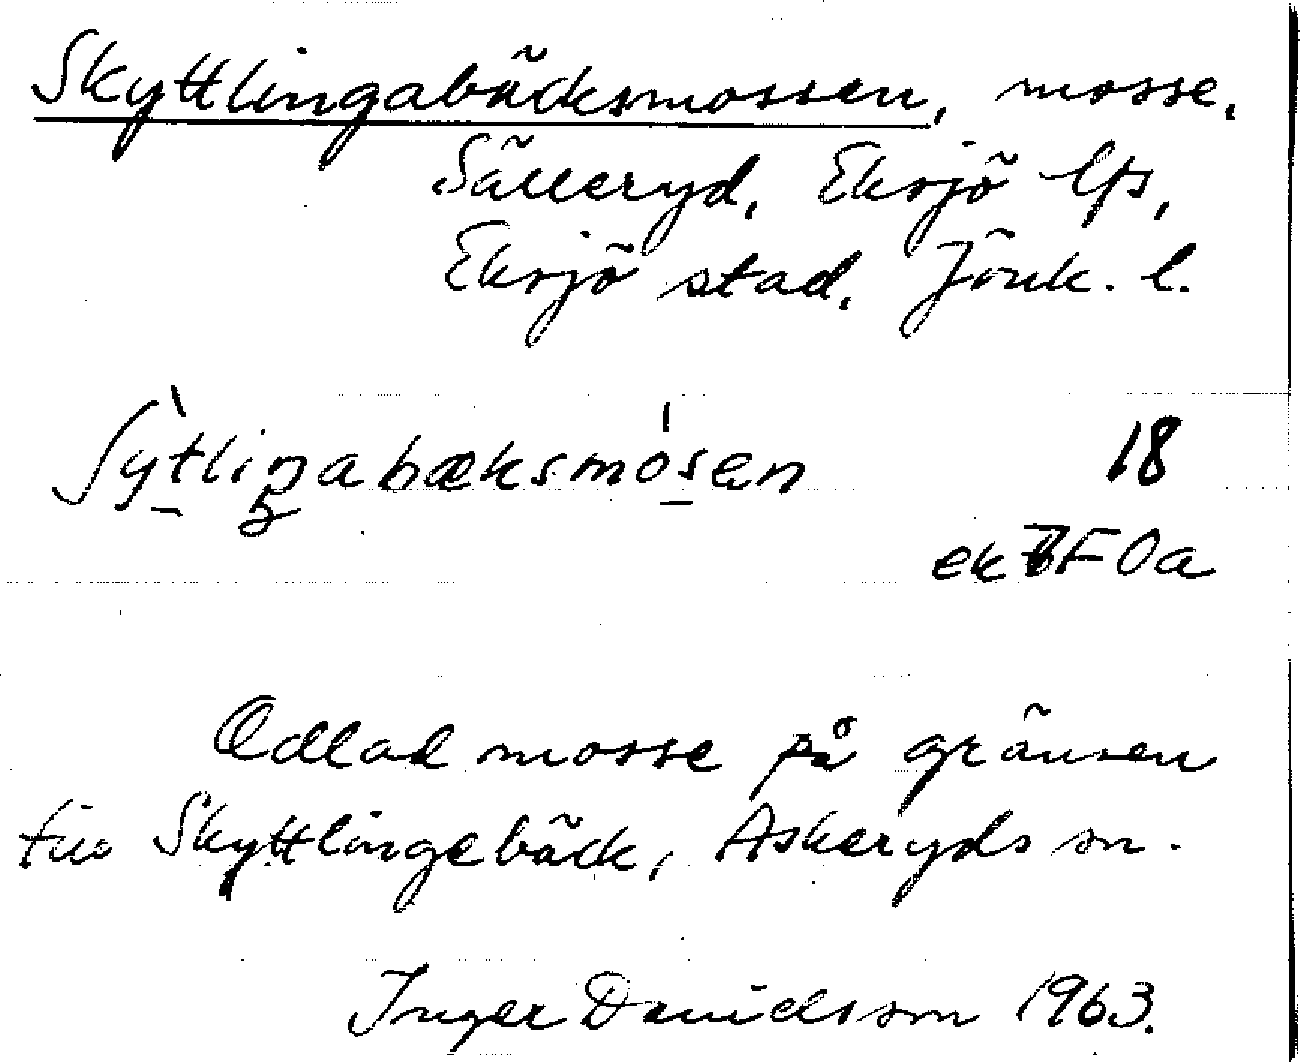 Skyttlingabäcksmossen, mosse.
Sälleryd, Eksjö lfs,
Eksjö stad, Jönk. l.
ʃỳtliŋabæksmósen 18
ek 7F0a
Odlad mosse på gränsen
till Skyttlingebäck, Askeryds sn.
Inger Danielsson 1963.